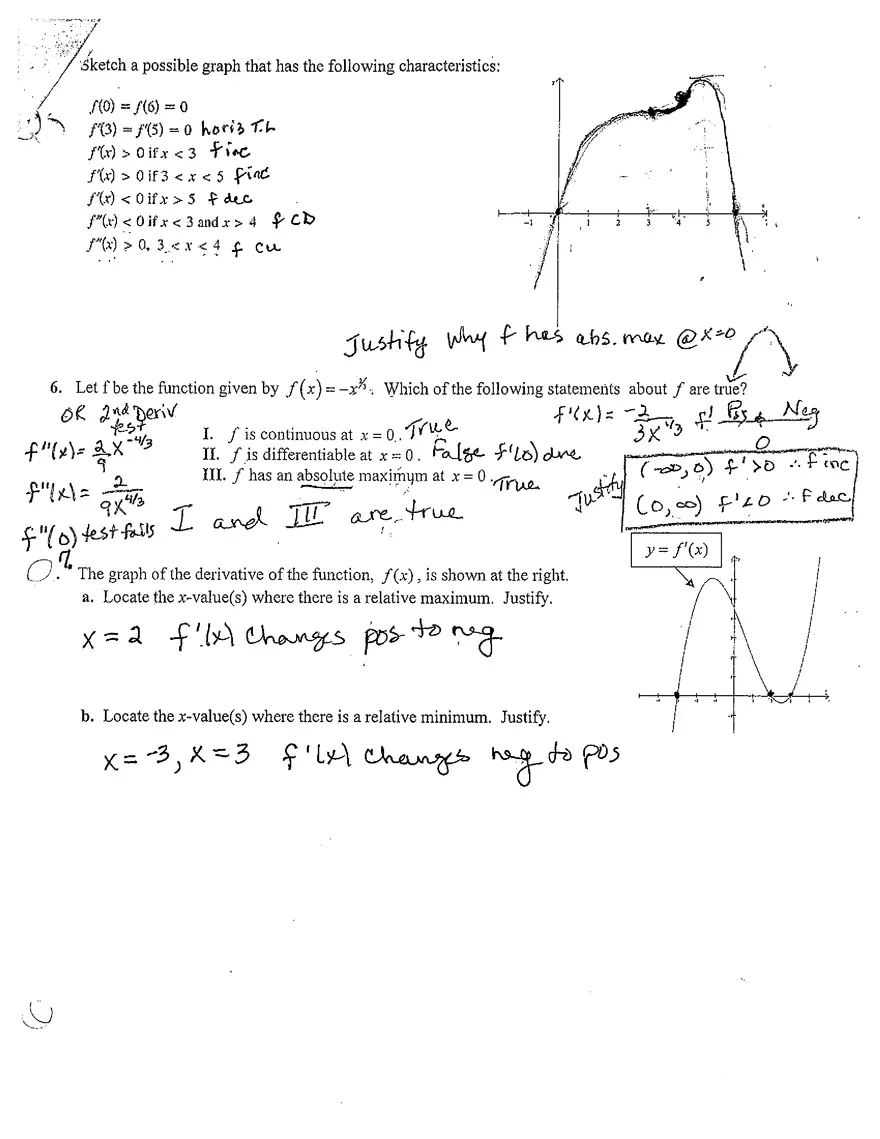 Sketch a possible graph that has the following characteristics:
f(0) = f(6) = 0
f'(3) = f'(5) = 0 horiz T.L
f'(x) > 0 if x < 3 f inc
f'(x) > 0 if 3 < x < 5 f inc
f'(x) < 0 if x > 5 f dec
f"(x) < 0 if x < 3 and x > 4 f CD
f"(x) > 0, 3 < x < 4 f cu
-1 1 2 3 4 5
Justify why f has abs. max @ x=0
6. Let f be the function given by f(x) = -x^⅔. Which of the following statements about f are true?
OR 2nd Deriv test
f"(x) = 2/9 x^-4/3
f"(x) = 2/(9x^4/3)
f"(0) test fails
I. f is continuous at x = 0. True
II. f is differentiable at x = 0. False f'(0) dne
III. f has an absolute maximum at x = 0. True
I and III are true
f'(x) = -2/(3x^1/3) f' Pos Neg
0
Justify
(-∞, 0) f' > 0 ∴ f inc
(0, ∞) f' < 0 ∴ f dec
7.
The graph of the derivative of the function, f(x), is shown at the right.
y = f'(x)
a. Locate the x-value(s) where there is a relative maximum. Justify.
x = 2 f'(x) changes pos to neg
b. Locate the x-value(s) where there is a relative minimum. Justify.
x = -3, x = 3 f'(x) changes neg to pos